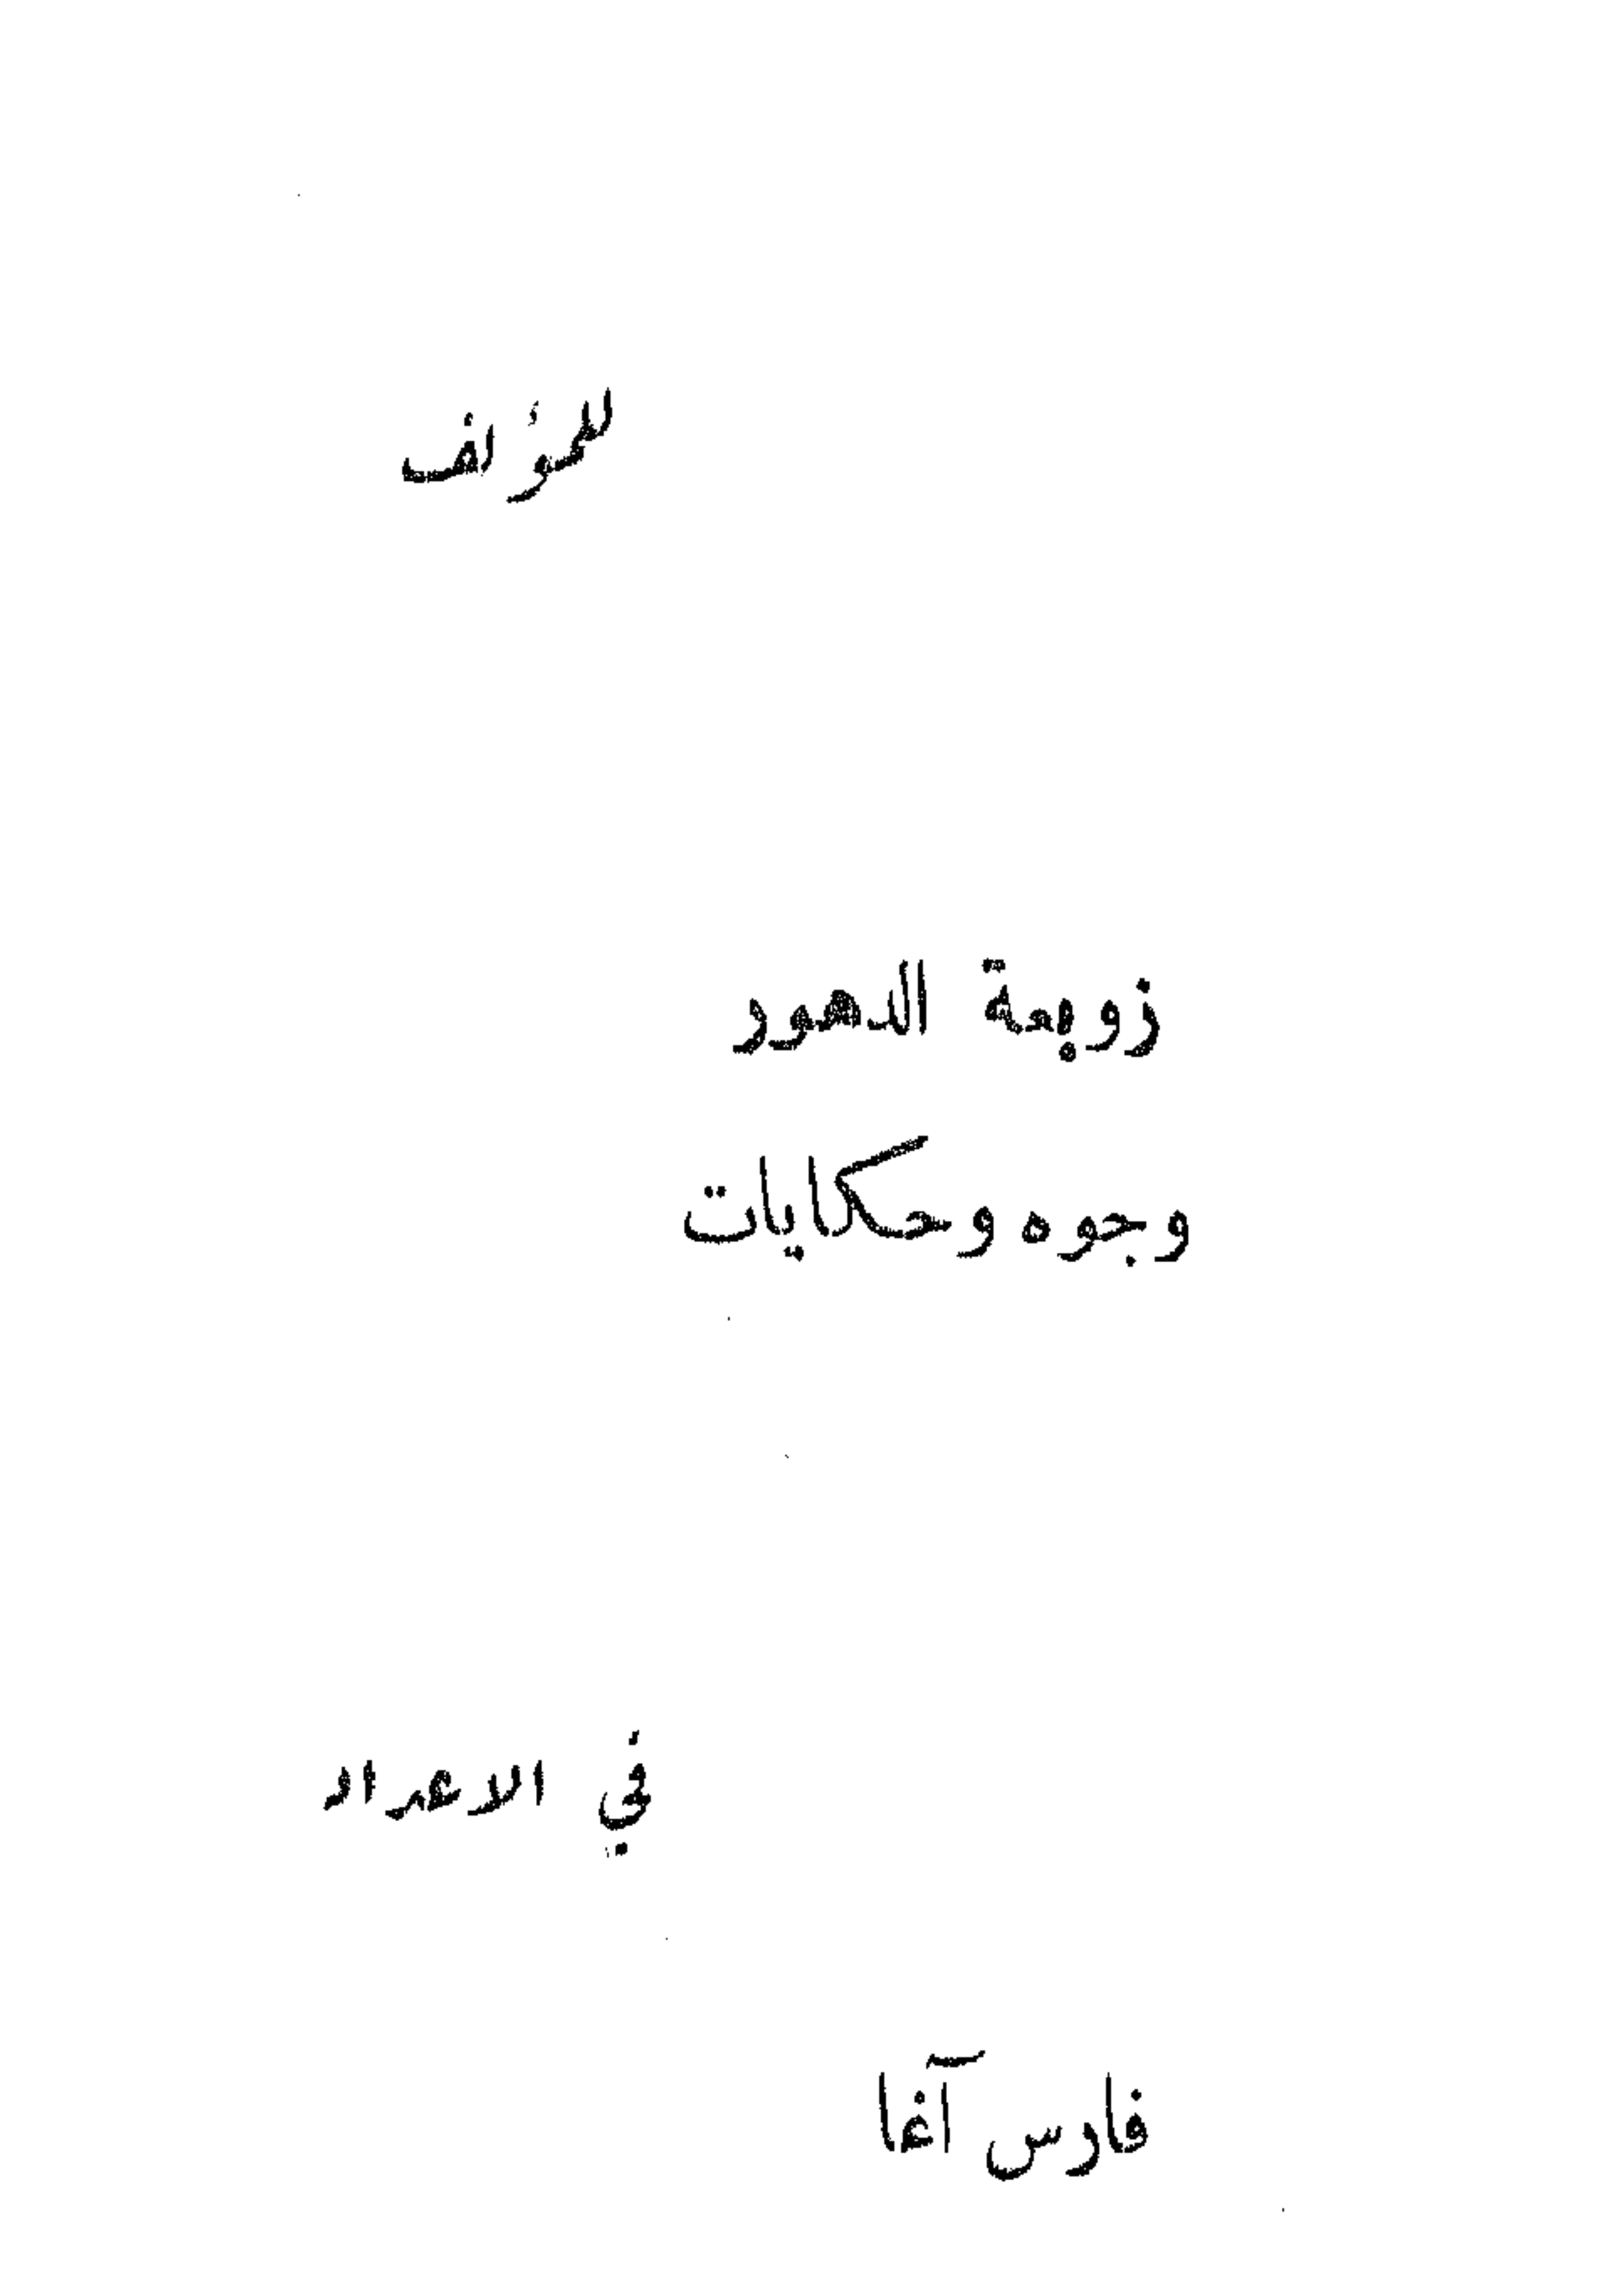 للمؤلف
زوبعة الدهور
وجوه وحكايات
في الاعداد
فارس آغا